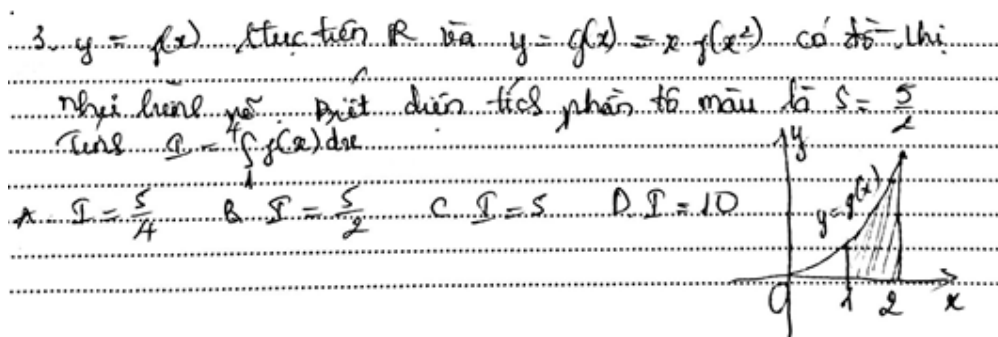 3. y = f(x) liên tục trên R và y = g(x) = x f(x²) có đồ thị
như hình vẽ. Biết diện tích phần tô màu là S = 5/2
Tính I = ∫₁⁴ f(x) dx
A. I = 5/4 B. I = 5/2 C. I = 5 D. I = 10
y
y = g(x)
O 1 2 x